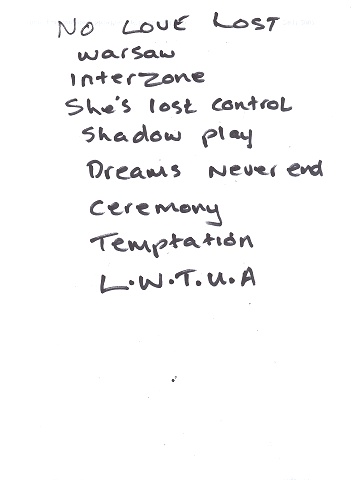 No LOVE LOST
warsaw
interzone
She's lost control
Shadow play
Dreams Never end
Ceremony
Temptation
L.W.T.U.A